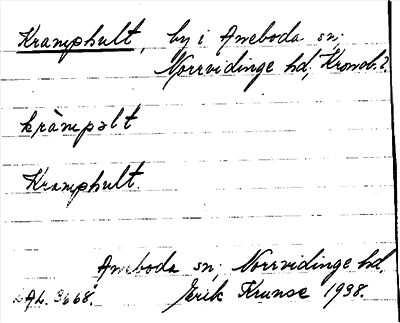 Kramphult, by i Aneboda sn,
Norrvidinge hd, Kronob. l.
kràmpəlt
Kramphult.
Aneboda sn, Norrvidinge hd,
Erik Krunse 1938.